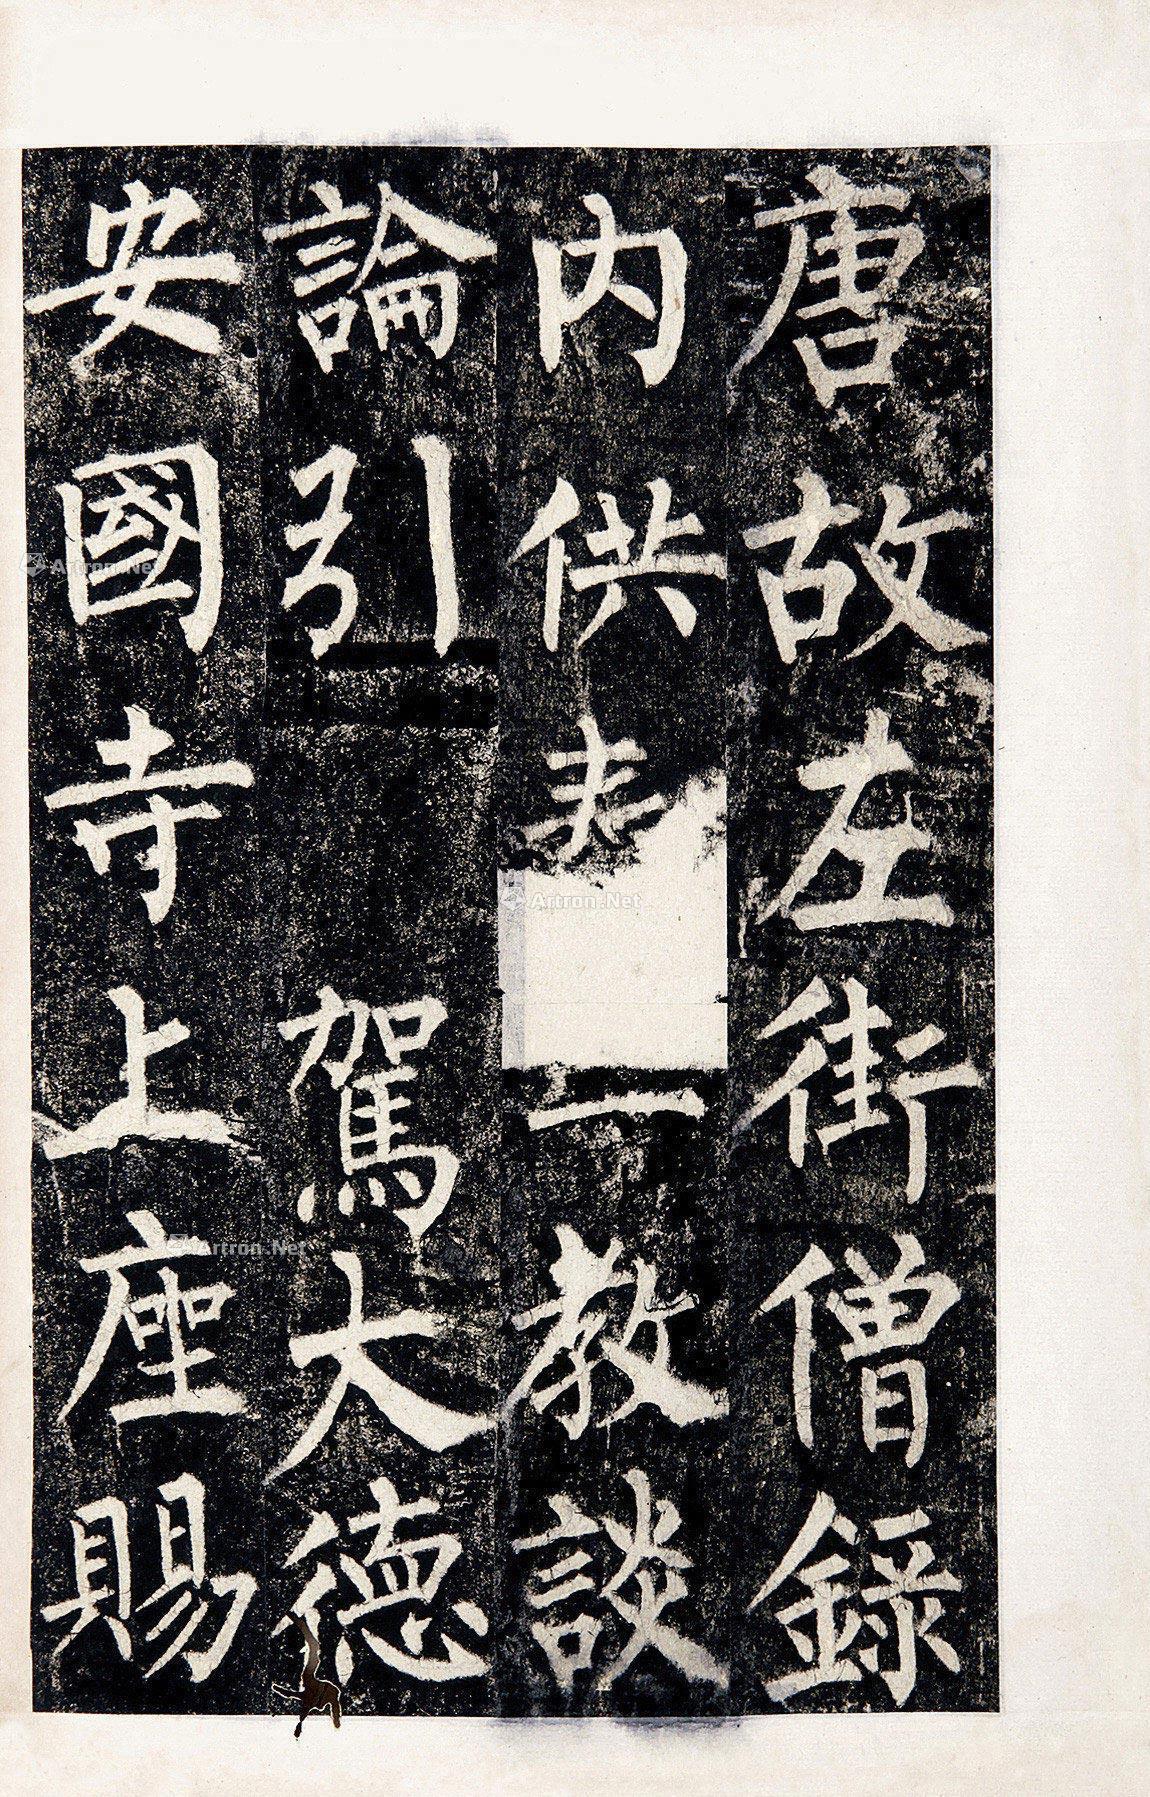 唐故左街僧録
内供教談
論引駕大德
安國寺上座賜
Artron.Net
Artron.Net
Artron.Net